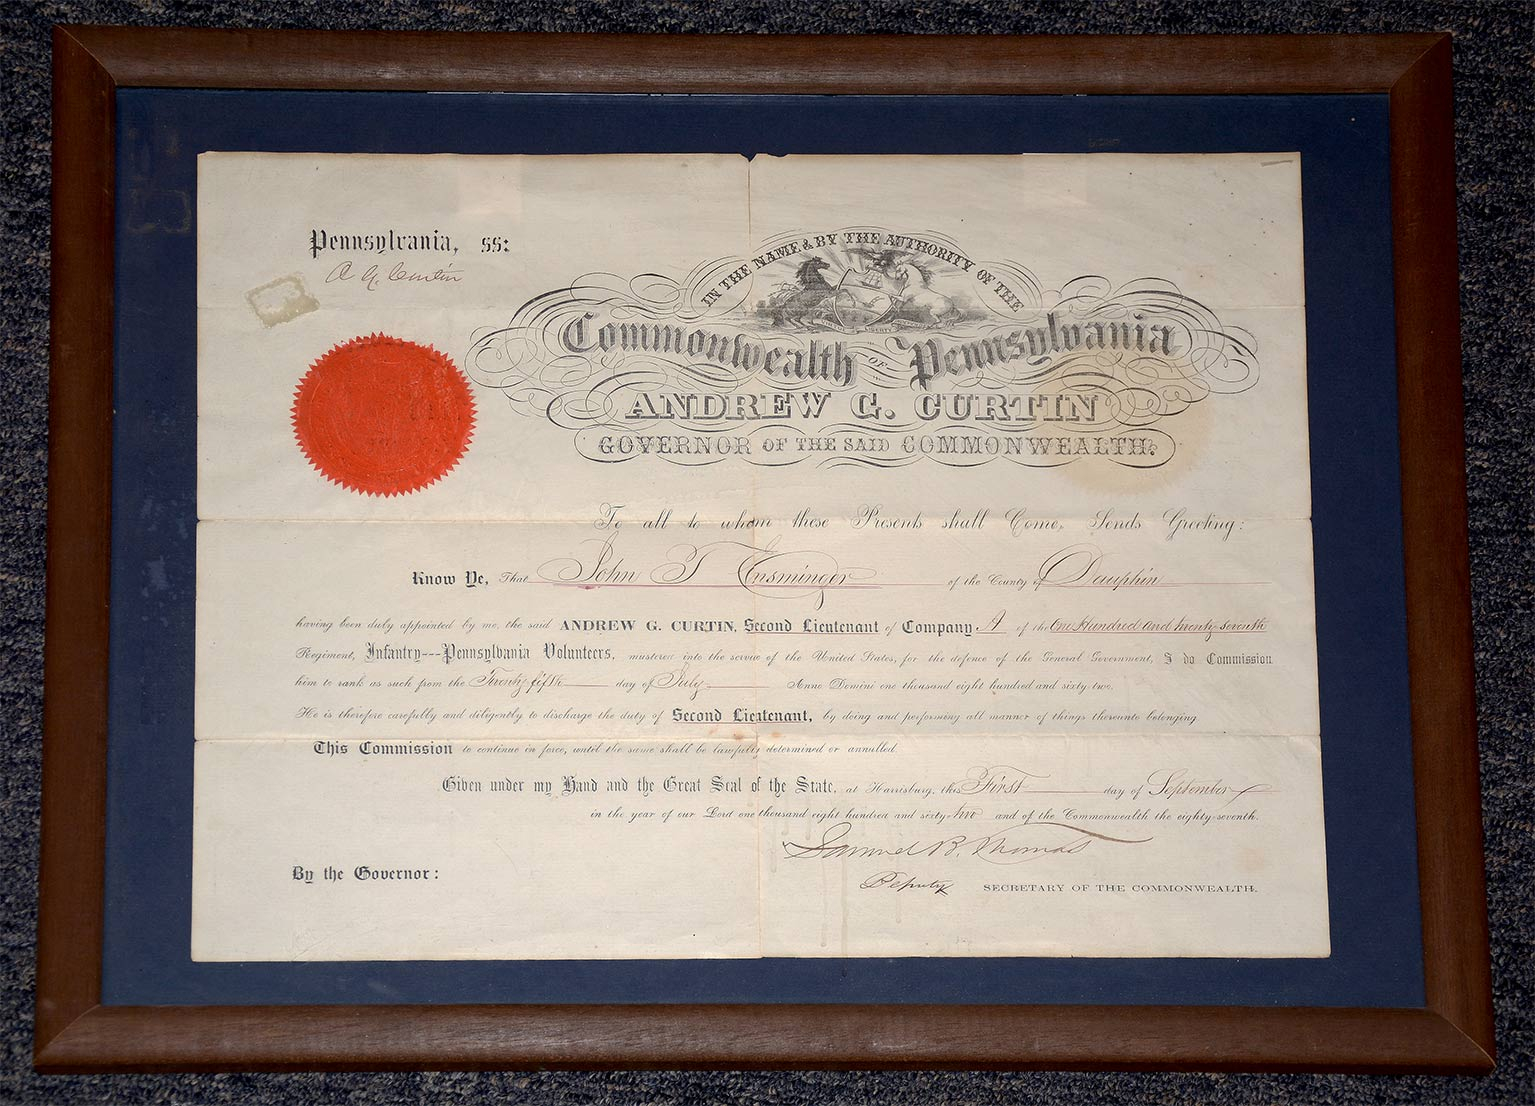 Pennsylvania, ss:
A G. Curtin
IN THE NAME & BY THE AUTHORITY OF THE
Commonwealth OF Pennsylvania
ANDREW G. CURTIN
GOVERNOR OF THE SAID COMMONWEALTH.
To all to whom these Presents shall Come, Sends Greeting:
Know Ye, That John T Ensminger of the County of Dauphin
having been duly appointed by me, the said ANDREW G. CURTIN, Second Lieutenant of Company A of the One Hundred and twenty-seventh
Regiment, Infantry---Pennsylvania Volunteers, mustered into the service of the United States, for the defence of the General Government, I do Commission
him to rank as such from the Twenty fifth day of July Anno Domini one thousand eight hundred and sixty-two.
He is therefore carefully and diligently to discharge the duty of Second Lieutenant, by doing and performing all manner of things thereunto belonging
This Commission to continue in force, until the same shall be lawfully determined or annulled.
Given under my Hand and the Great Seal of the State, at Harrisburg, this First day of September
in the year of our Lord one thousand eight hundred and sixty-two and of the Commonwealth the eighty-seventh.
Samuel B. Thomas
By the Governor:
Deputy SECRETARY OF THE COMMONWEALTH.